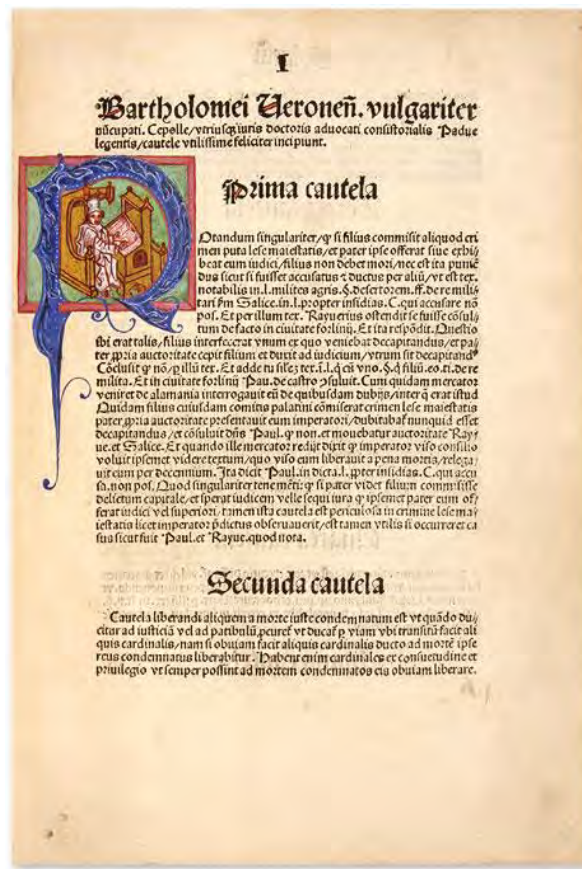 I
Bartholomei Ueroneñ. vulgariter
nūcupati. Cepolle/vtriusqȝ iuris doctoris aduocati consistorialis Padue
legentis/cautele vtilissime feliciter incipiunt.
Prima cautela
Otandum singulariter/ꝙ si filius commisit aliquod cri
men puta lese maiestatis/et pater ipse offerat siue exhi/
beat eum iudici/filius non debet mori/nec est ita puniē
dus sicut si fuisset accusatus ⁊ ductus per aliū/vt est tex.
notabilis in.l.milites agris.§.desertorem.ff.de re mili/
tari ꝑm Salice.in.l.propter insidias.C.qui accusare nō
pos. Et per illum tex. Rayuerius ostendit se fuisse cōsul/
tum de facto in ciuitate forliuij. Et ita respōdit. Questio
ibi erat talis/filius interfecerat vnum ex quo veniebat decapitandus/et pa/
ter ꝓpria auctoritate cepit filium et duxit ad iudicium/vtrum sit decapitandꝰ
Cōclusit ꝙ nō/ꝑ illū tex. Et adde tu tex̄.ī.l.q̄ cū vno.§.q̄ filiū.eo.ti.de re
milita. Et in ciuitate forliuij Pau.de castro ↄsuluit. Cum quidam mercator
veniret de alamania interrogauit eū de quibusdam dubijs/inter q̄ erat istud
Quidam filius cuiusdam comitis palatini cōmiserat crimen lese maiestatis
pater ꝓpria auctoritate presentauit eum imperatori/dubitabat̄ nunquid esset
decapitandus/et cōsuluit dn̄s Paul. ꝙ non. et mouebatur auctoritate Ray/
ue.et Salice. Et quando ille mercator redijt dixit ꝙ imperator viso consilio
voluit ipsemet videre textum/quo viso eum liberauit a pena mortis/relega/
uit eum per decennium. Ita dicit Paul.in dicta.l.ꝓpter insidias.C.qui accu
sa.non pos. Quod singulariter tene mēti: ꝙ si pater videt filium commisisse
delictum capitale/et sperat iudicem velle sequi iura ꝙ ipsemet pater eum of/
ferat iudici vel superiori: tamen ista cautela est periculosa in crimine lese ma/
iestatis licet imperator p̄dictus obseruauerit/est tamen vtilis si occurreret ca
sus sicut fuit Paul.et Rayue.quod nota.
Secunda cautela
Cautela liberandi aliquem a morte iuste condemnatum est vt quādo du/
citar ad iusticiā vel ad patibulū/ vt ducat̄ ꝑ viam vbi transitū facit ali
quis cardinalis/nam si obuiam facit aliquis cardinalis ducto ad mortē ipse
reus condemnatus liberabitur. Habent enim cardinales ex consuetudine et
priuilegio vt semper possint ad mortem condemnatos eis obuiam liberare.